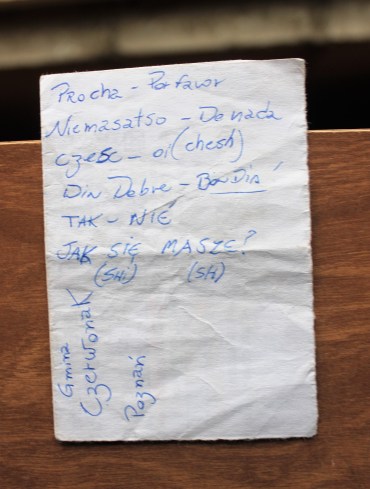 Procha - Por favor
Niemasatso - De nada
CZESC - oi (chesh)
Din Dobre - Bon Dia
TAK - NIE
JAK SIĘ MASZE?
(SHi) (SH)
Gmina
Czerwonak
Poznań